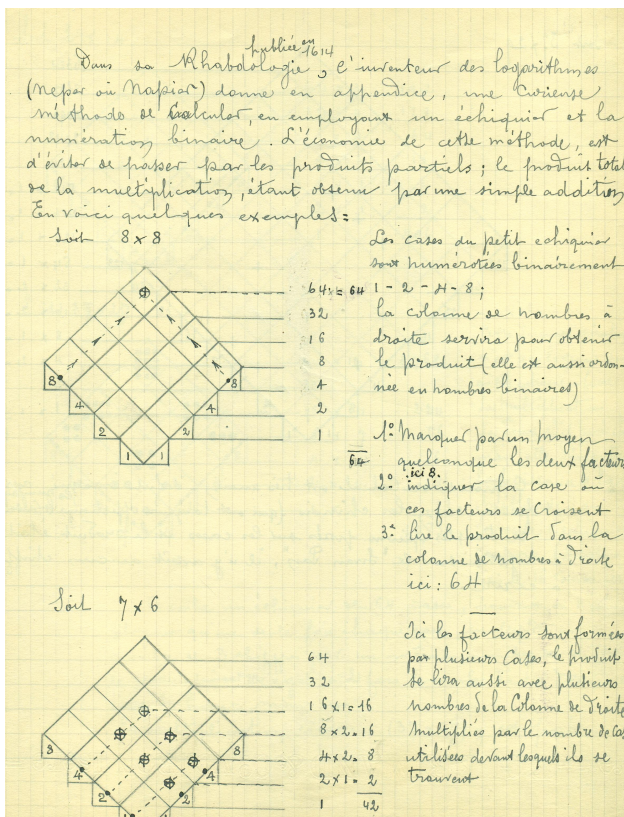 publiée en 1614
Dans sa Rhabdologie, l'inventeur des logarithmes
(Neper ou Napier) donne en appendice, une curieuse
méthode de Calculer, en employant un échiquier et la
numération binaire. L'économie de cette méthode, est
d'éviter de passer par les produits partiels; le produit total
de la multiplication, étant obtenu par une simple addition
En voici quelques exemples:
Soit 8 x 8
64 = 64
32
16
8
4
2
1
64
8
4
2
1
1
2
4
8
Les cases du petit echiquier
sont numérotées binairement
1 - 2 - 4 - 8;
la colonne de nombres à
droite servira pour obtenir
le produit (elle est aussi ordon-
née en nombres binaires)
1º Marquer par un moyen
quelconque les deux facteurs
ici 8.
2º indiquer la case où
ces facteurs se croisent
3º lire le produit dans la
colonne de nombres à droite
ici: 64
Soit 7 x 6
64
32
16 x 1 = 16
8 x 2 = 16
4 x 2 = 8
2 x 1 = 2
1
42
4
2
2
4
8
Ici les facteurs sont formées
par plusieurs Cases, le produit
se lira aussi avec plusieurs
nombres de la Colonne de droite
multipliés par le nombre de Cas
utilisées devant lesquels ils se
trouvent